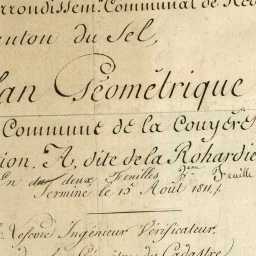 rrondissem.t Communal de Re
anton du Sel,
lan Géométrique
Commune de la Couyère
ion A, dite de la Rohardie
En deux Feuilles 2.me Feuille
Terminé le 15 Août 1811,
Lefevre Ingénieur Vérificateur
du Cadastre